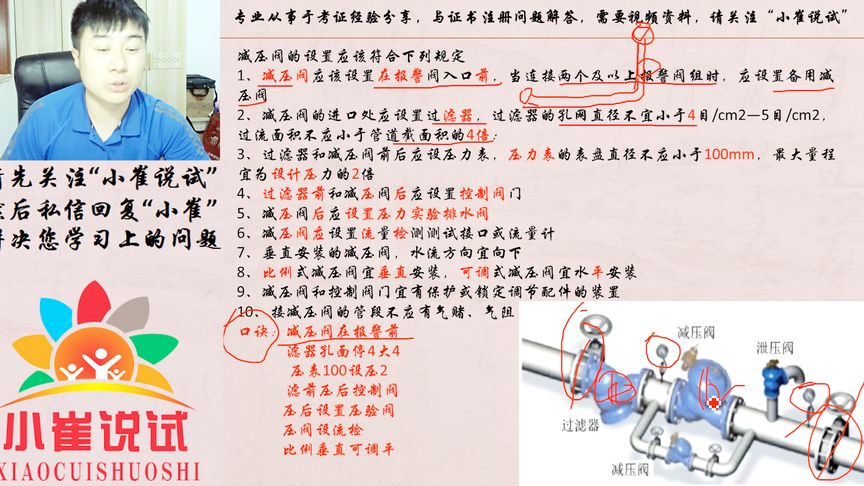 专业从事于考证经验分享，与证书注册问题解答，需要视频资料，请关注“小崔说试”
减压阀的设置应该符合下列规定
1、减压阀应该设置在报警阀入口前，当连接两个及以上报警阀组时，应设置备用减
压阀
2、减压阀的进口处应设置过滤器，过滤器的孔网直径不宜小于4目/cm2—5目/cm2，
过流面积不应小于管道截面积的4倍；
3、过滤器和减压阀前后应设压力表，压力表的表盘直径不应小于100mm，最大量程
宜为设计压力的2倍
4、过滤器前和减压阀后应设置控制阀门
5、减压阀后应设置压力实验排水阀
6、减压阀应设置流量检测测试接口或流量计
7、垂直安装的减压阀，水流方向宜向下
8、比例式减压阀宜垂直安装，可调式减压阀宜水平安装
9、减压阀和控制阀门宜有保护或锁定调节配件的装置
10、接减压阀的管段不应有气赌、气阻
口诀：减压阀在报警前
滤器孔面停4大4
压表100设压2
滤前压后控制阀
压后设置压验阀
压阀设流检
比例垂直可调平
先关注“小崔说试”
后私信回复“小崔”
决您学习上的问题
小崔说试
XIAOCUISHUOSHI
减压阀
泄压阀
过滤器
减压阀